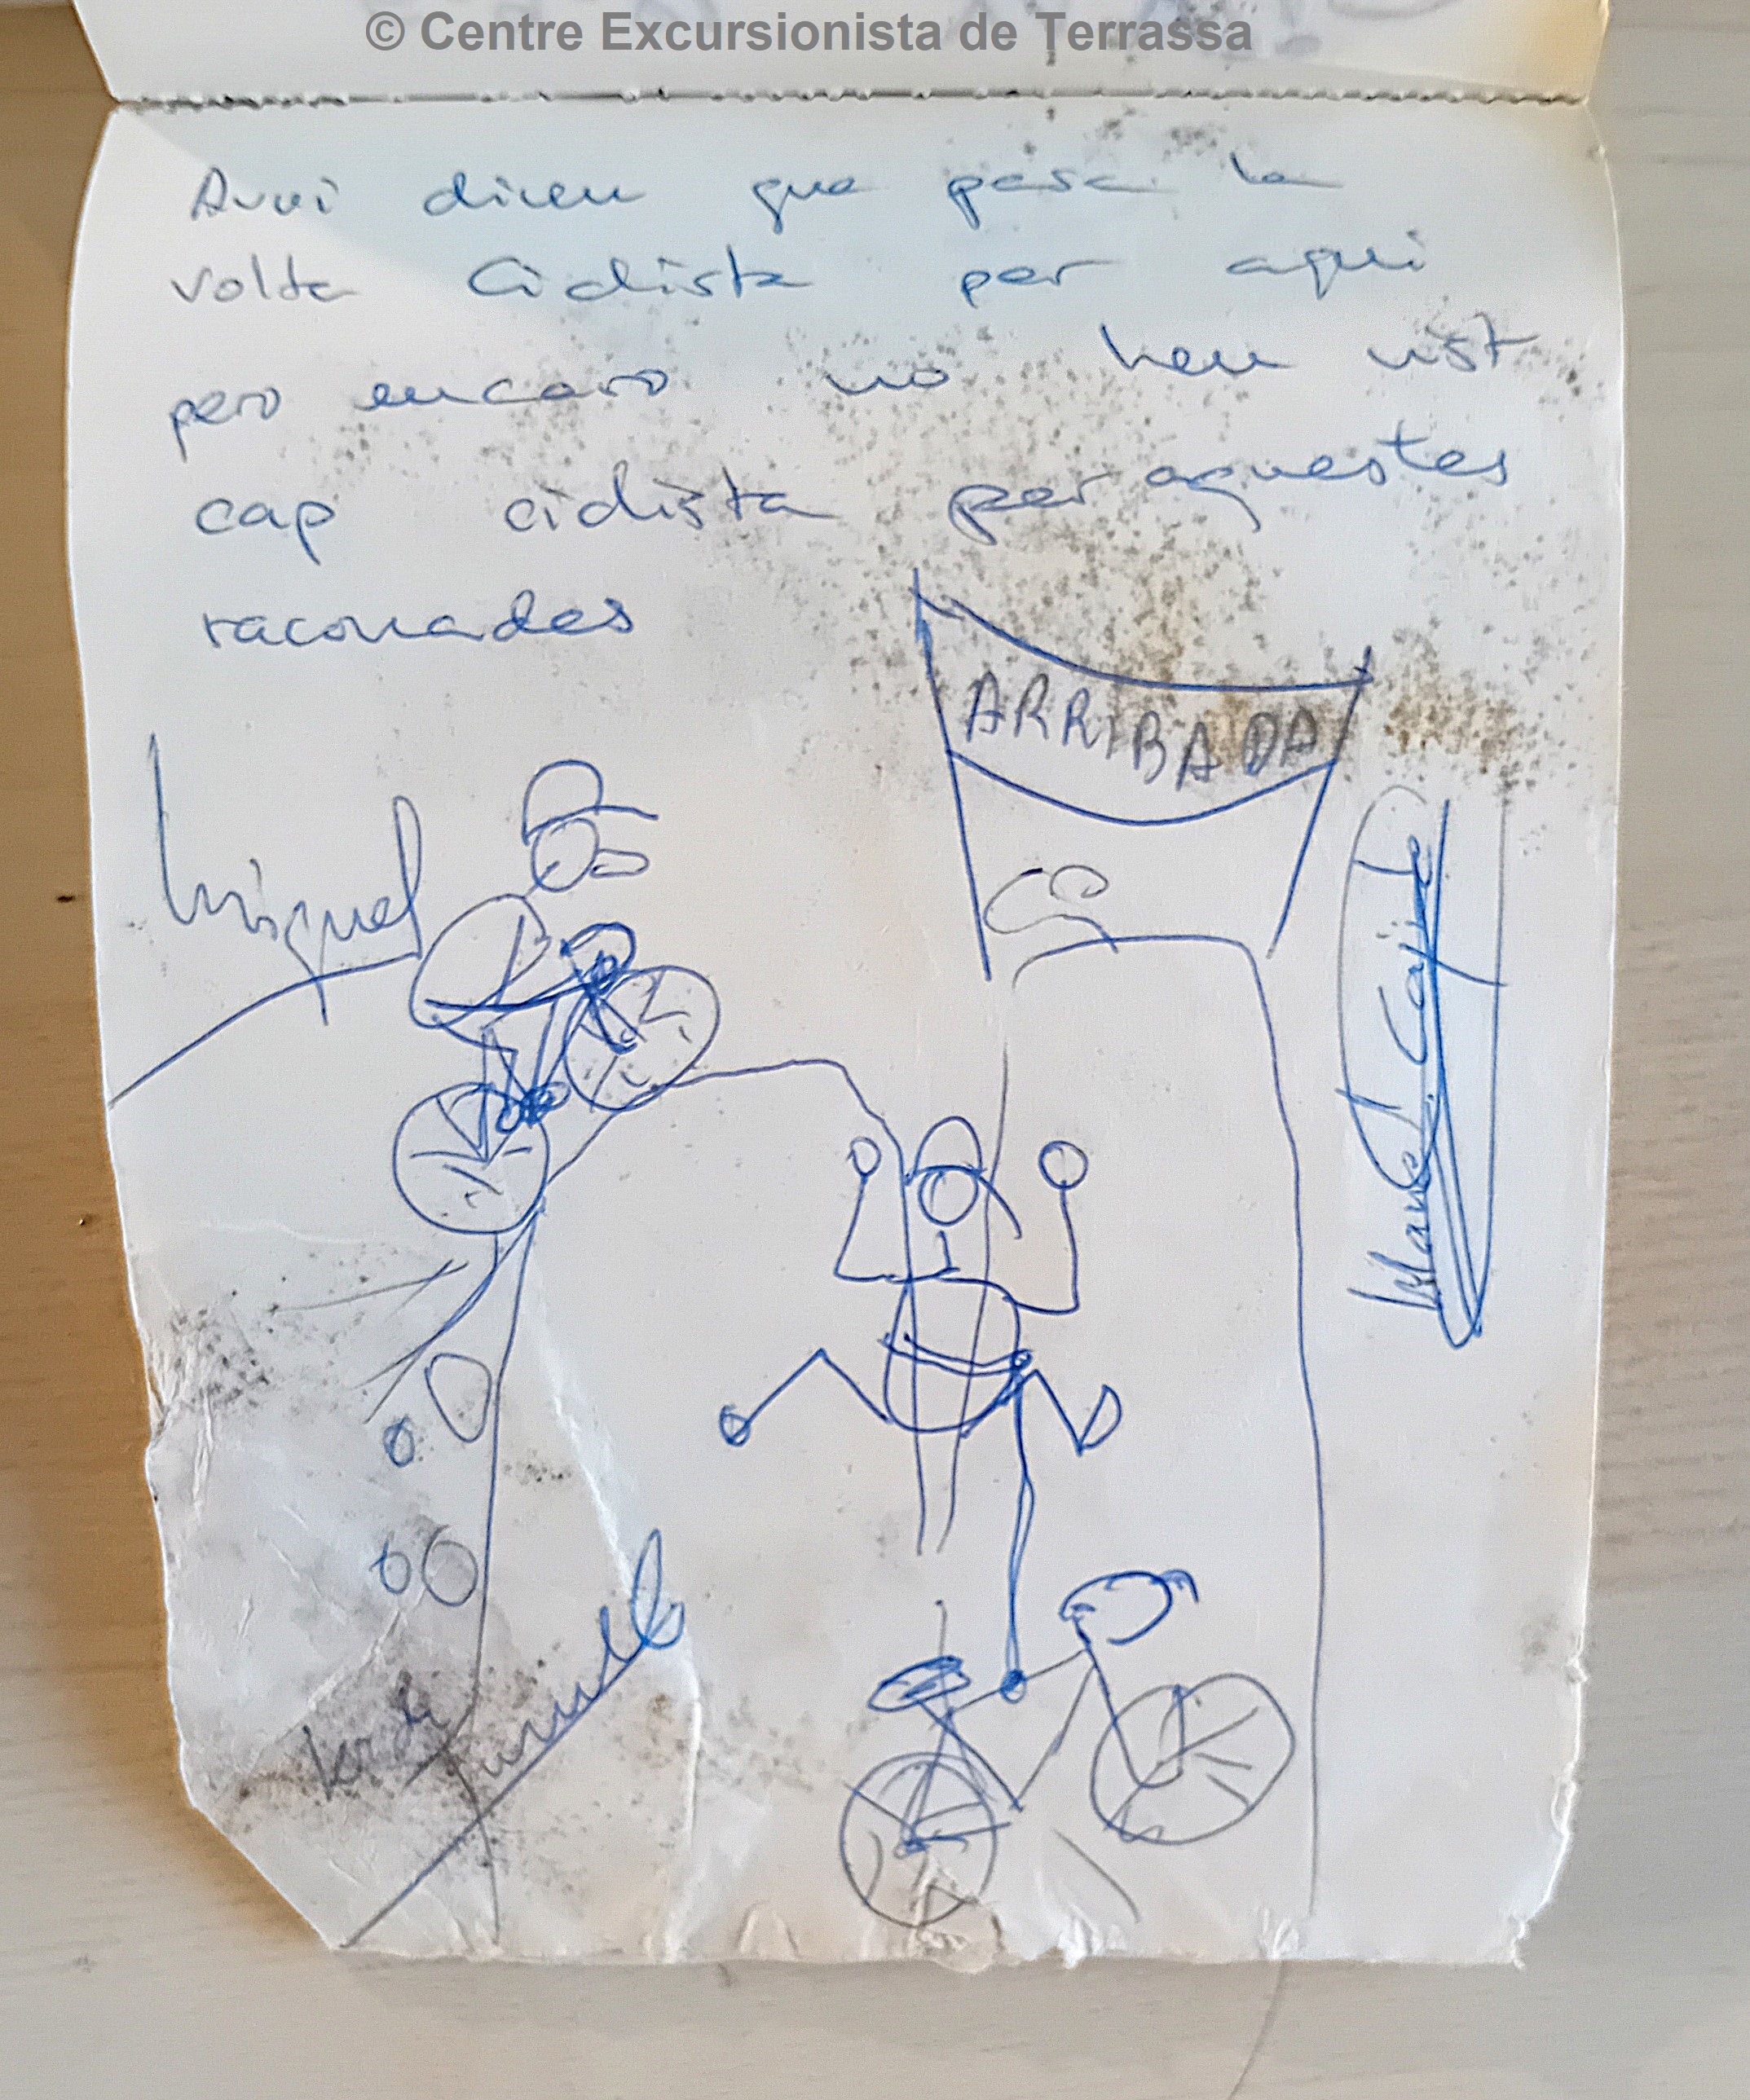 © Centre Excursionista de Terrassa
Avui diuen que pasa la
volta Ciclista per aqui
pero encara no hem vist
cap ciclista per aquestes
raconades
ARRIBADA
Miquel
Manel